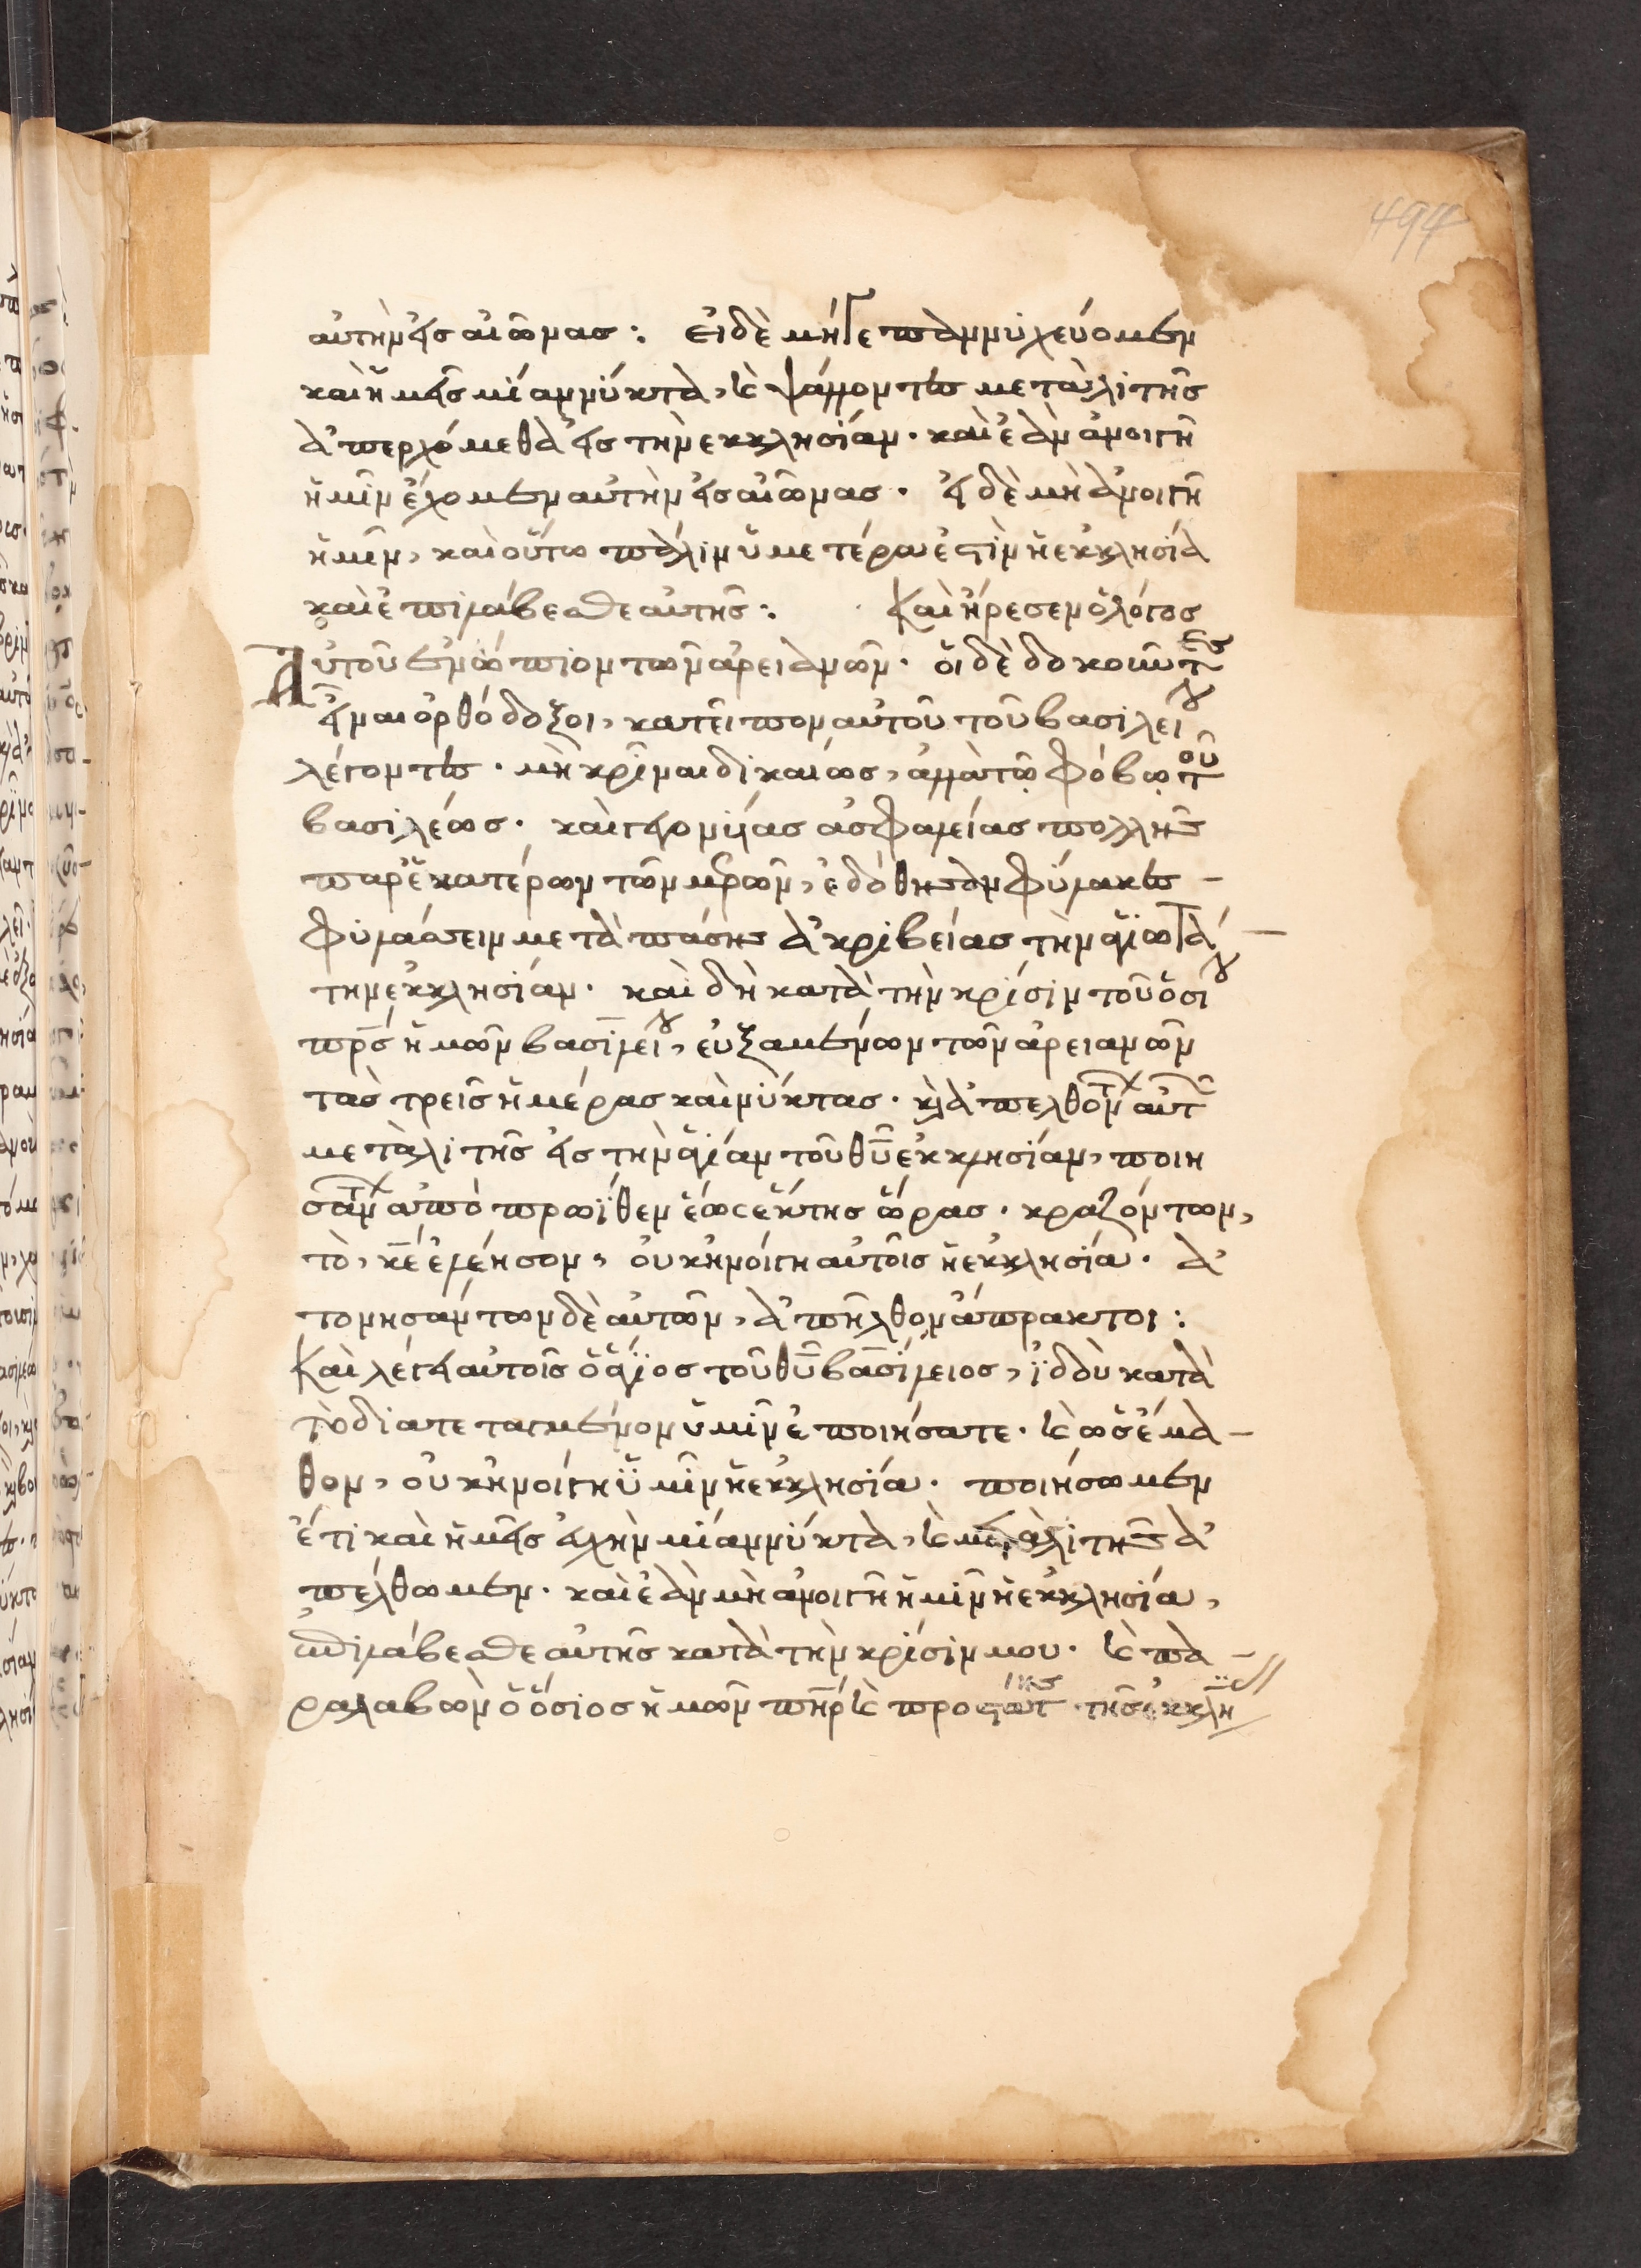 494
αὐτὴν εἰς αἰῶνας: εἰ δὲ μήγε παννυχεύομεν
καὶ ἡμεῖς μίαν νύκτα, καὶ ψάλλοντες μετὰ λιτῆς
ἀπερχόμεθα εἰς τὴν ἐκκλησίαν. καὶ ἐὰν ἀνοιγῆ
ἡμῖν ἔχομεν αὐτὴν εἰς αἰῶνας. εἰ δὲ μὴ ἀνοιγῆ
ἡμῖν, καὶ οὕτω πάλιν ὑμετέρα ἐστὶν ἡ ἐκκλησία
καὶ ἐπιλάβεσθε αὐτῆς: Καὶ ἤρεσεν ὁ λόγος
Αὐτοῦ ἐνώπιον τῶν ἀρειανῶν. οἱ δὲ δοκοῦντες
εἶναι ὀρθόδοξοι, κατεῖπον αὐτοῦ τοῦ βασιλείου
λέγοντες. μὴ κρῖναι δικαίως, ἀλλὰ τῷ φόβῳ τοῦ
βασιλέως. καὶ γενομένης ἀσφαλείας πολλῆς
παρ' ἑκατέρων τῶν μερῶν, ἐδόθησαν φύλακες -
φυλάσσειν μετὰ πάσης ἀκριβείας τὴν ἁγιωτά -
την ἐκκλησίαν. καὶ δὴ κατὰ τὴν κρίσιν τοῦ ὁσίου
πρς ἡμῶν βασιλείου, εὐξαμένων τῶν ἀρειανῶν
τὰς τρεῖς ἡμέρας καὶ νύκτας. καὶ ἀπελθόντων αὐτῶν
μετὰ λιτῆς εἰς τὴν ἁγίαν τοῦ θυ ἐκκλησίαν, ποιη
σάντων ἀπὸ πρωΐθεν ἕως ἕκτης ὥρας. κραζόντων,
τὸ, κε ἐλέησον, οὐκ ἠνοίγη αὐτοῖς ἡ ἐκκλησία. ἀ
τονησάντων δὲ αὐτῶν, ἀπῆλθον ἄπρακτοι:
Καὶ λέγει αὐτοῖς ὁ ἅγιος τοῦ θυ βασίλειος, ἰδοὺ κατὰ
τὸ διατεταγμένον ὑμῖν ἐποιήσατε. καὶ ὡς ἔμα -
θον, οὐκ ἠνοίγη ὑμῖν ἡ ἐκκλησία. ποιήσωμεν
ἔτι καὶ ἡμεῖς εὐχὴν μίαν νύκτα, καὶ μετὰ λιτῆς ἀ
πέλθωμεν. καὶ ἐὰν μὴ ἀνοιγῆ ἡμῖν ἡ ἐκκλησία,
ἐπιλάβεσθε αὐτῆς κατὰ τὴν κρίσιν μου. καὶ πα -
ραλαβὼν ὁ ὅσιος ἡμῶν πηρ καὶ προστάτης τῆς ἐκκλη